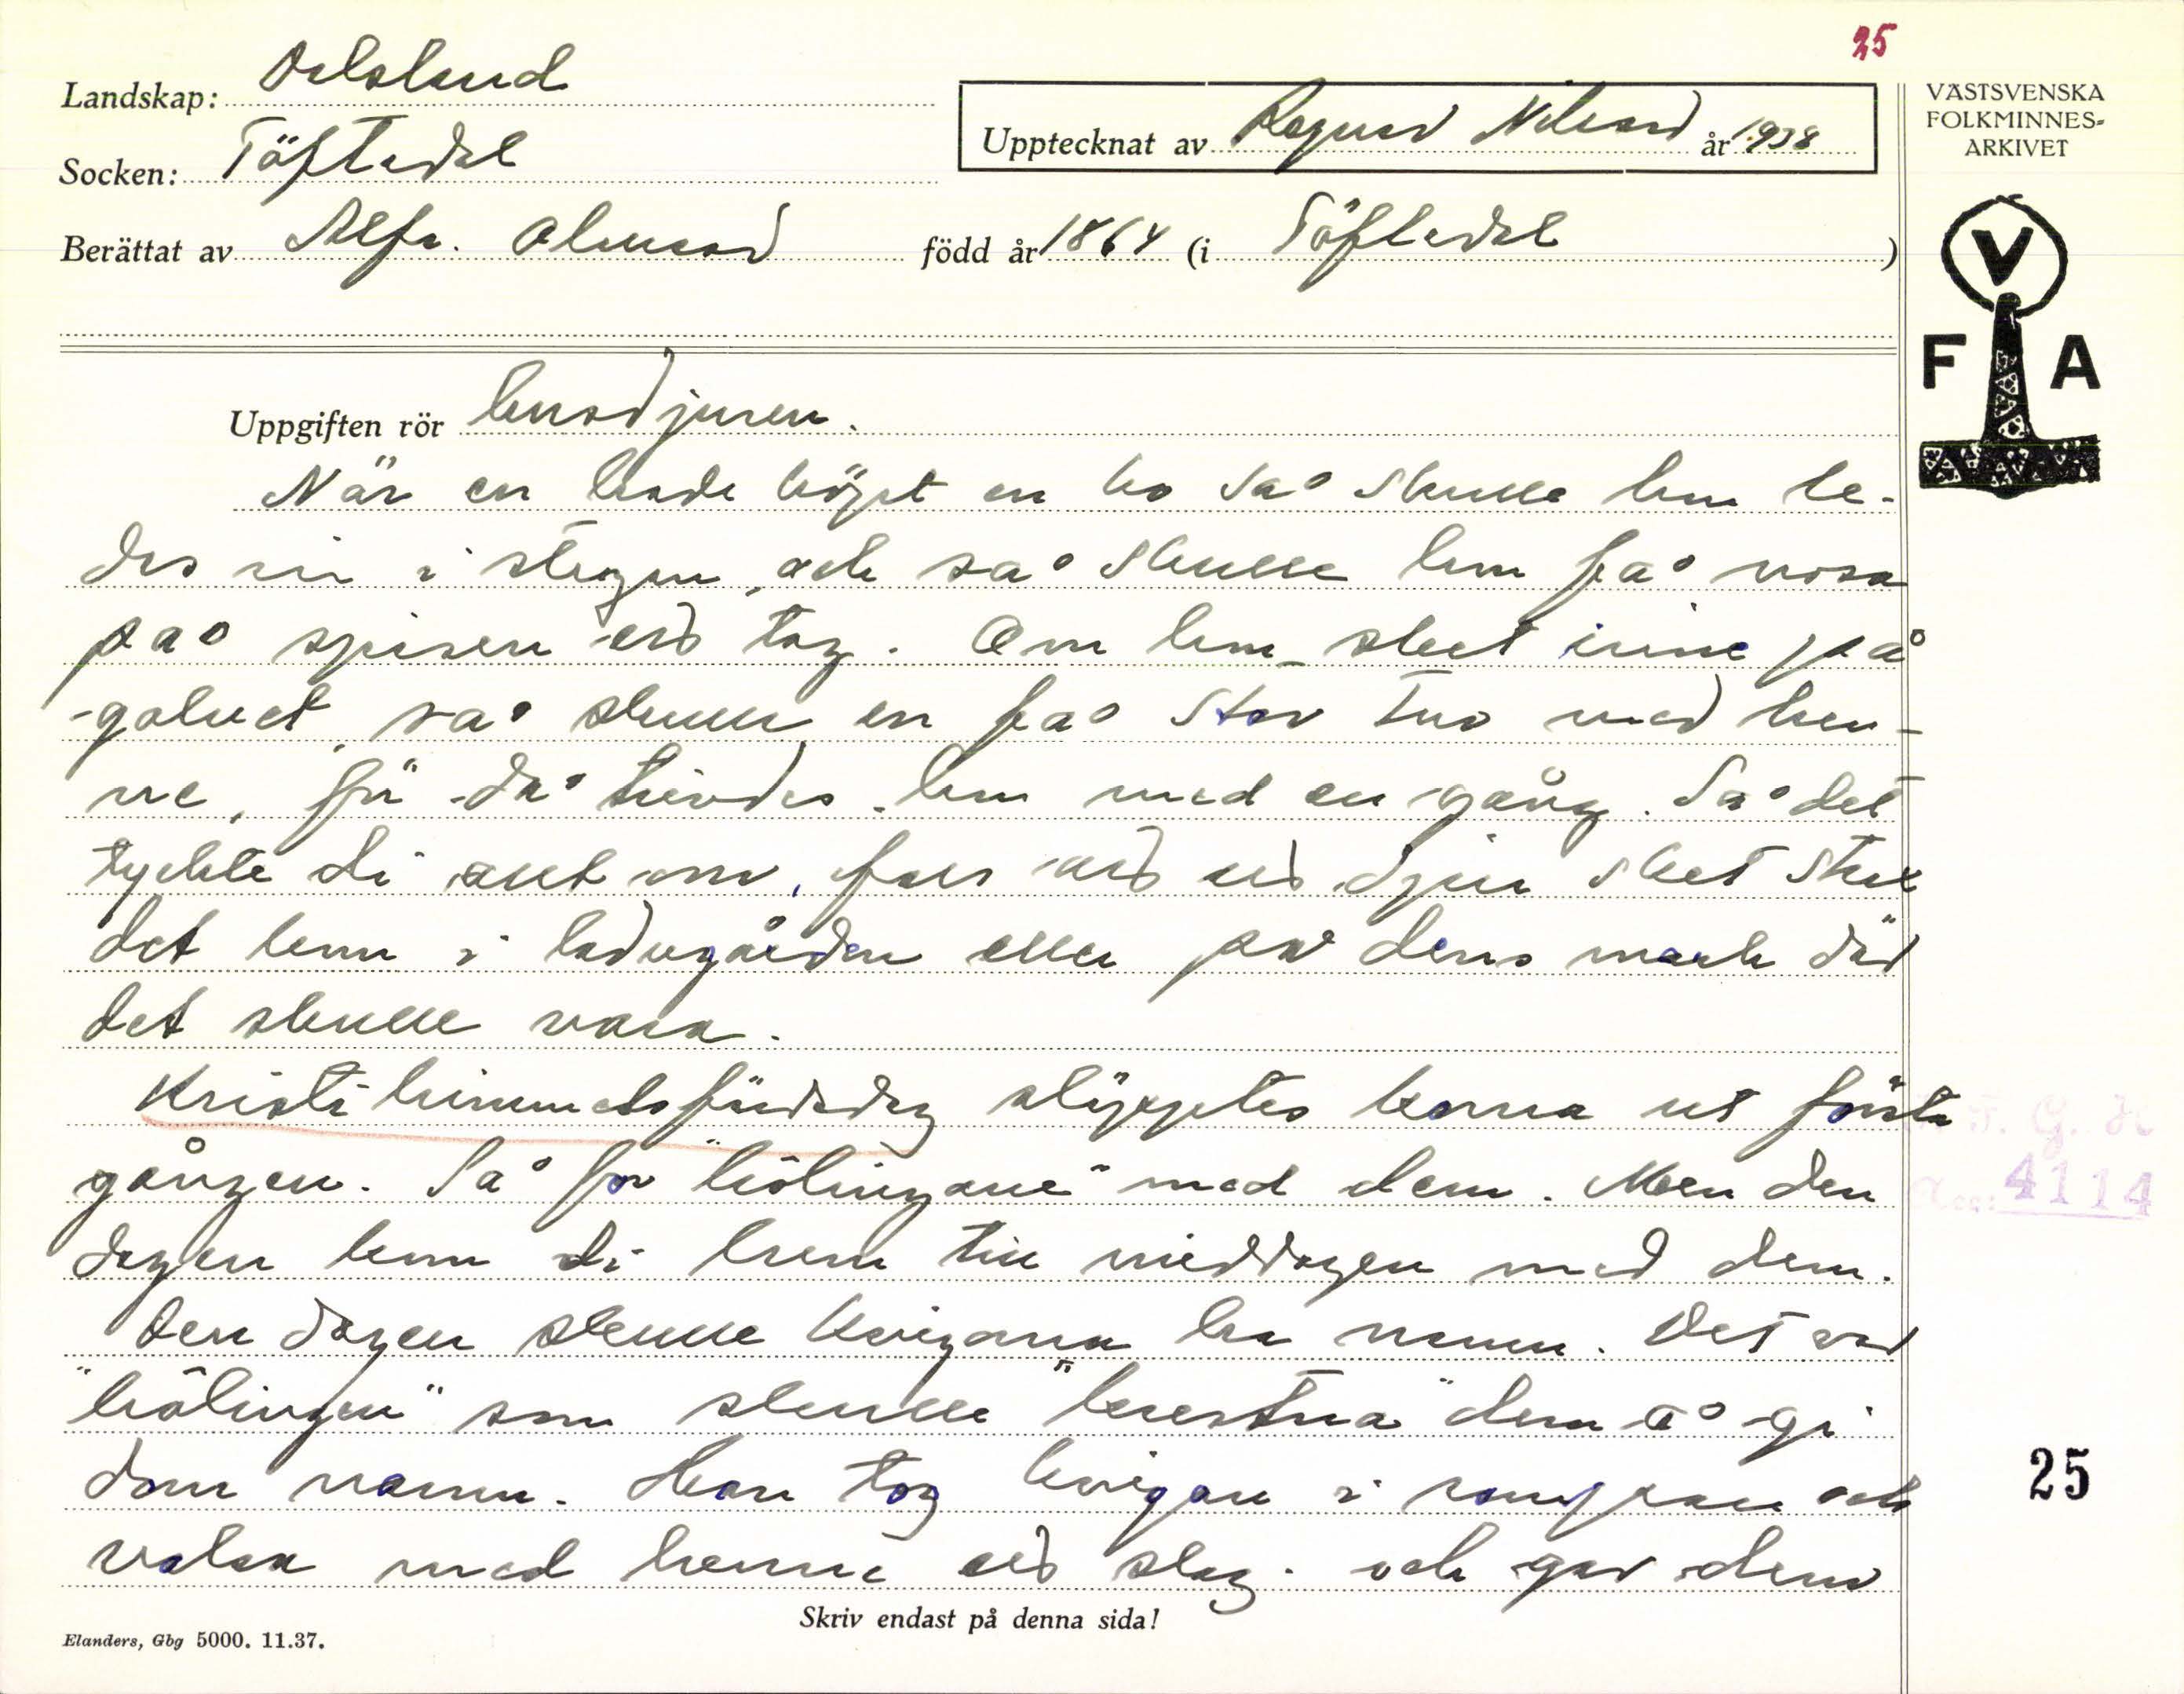 25
Landskap: Dalsland
Socken: Töftedal
Upptecknat av Ragnar Nilsson år 1938
Berättat av Alfr. Olausson född år 1864 (i Töftedal)
VÄSTSVENSKA
FOLKMINNES-
ARKIVET
V
F A
Uppgiften rör husdjuren.
När en hade köpt en ko så skulle hon le-
das in i stugan, och så skulle hon få nosa
på spisen ett tag. Om hon sket inne på
golvet, så skulle en få stor tur med hen-
ne, för då trivdes hon med en gång. Så det
tyckte di gott om, fast att ett djur sket strax
det kom i ladugården eller på dens mark där
det skulle vara.
Kristi himmelsfärdsdag släpptes korna ut första
gången. Så for "hölingane" med dem. Men den
dagen kom di hem till middagen med dem.
Den dagen skulle kvigorna ha namn. Det var
"hölingen" som skulle "krestna" dem å gi
dom namn. Han tog kvigan i rumpan och
 med henne ett slag. och gav dem
F. G. H
Acc: 4114
25
Skriv endast på denna sida!
Elanders, Gbg 5000. 11.37.